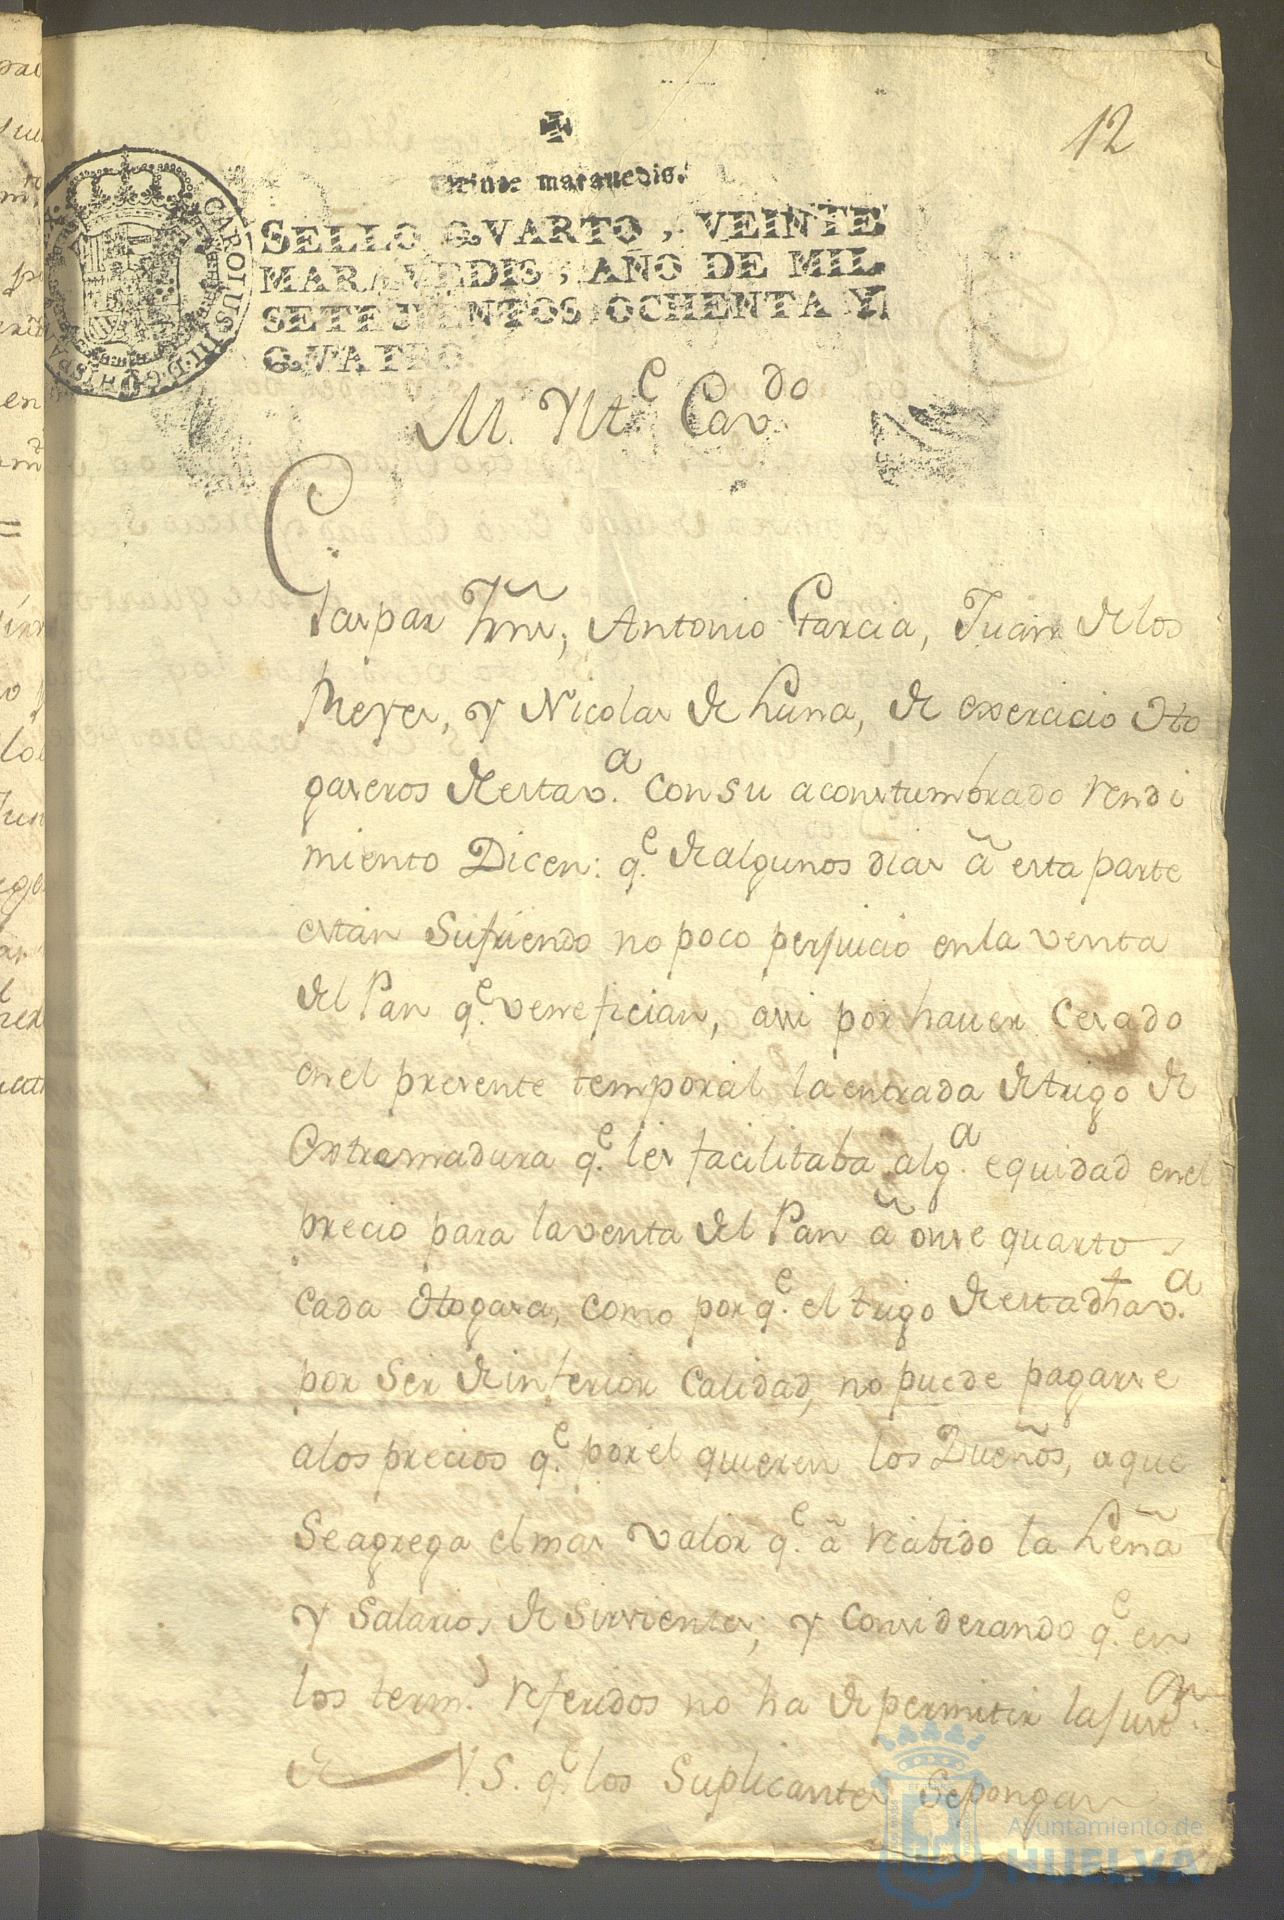 12
Veinte maravedis.
SELLO QVARTO, VEINTE
MARAVEDIS, AÑO DE MIL
SETECIENTOS OCHENTA Y
QVATRO.
CAROLUS III D. G. HISPAN
M. Ylte Cavdo
Gaspar Jnrs, Antonio Garcia, Juan de los
Reyes, y Nicolas de Luna, de exercicio Ho
gaseros de esta va. con su acostumbrado rendi
miento Dicen: qe. de algunos dias â esta parte
estan sufriendo no poco perjuicio en la venta
del Pan qe. venefician, assi por haver cesado
en el presente temporal la entrada de trigo de
Extremadura qe. les facilitaba alga. equidad en el
precio para la venta del Pan â onse quartos
cada Hogasa, como por qe. el trigo de esta dha va.
por ser de inferior calidad, no puede pagarse
a los precios qe. por el quieren los Dueños, a que
se agrega el mas valor qe. â recibido la Leña
y salarios de sirvientes; y considerando qe. en
los terms. referidos no ha de permitir la justn.
de V.S. qe. los suplicantes se pongan
Ayuntamiento de
HUELVA